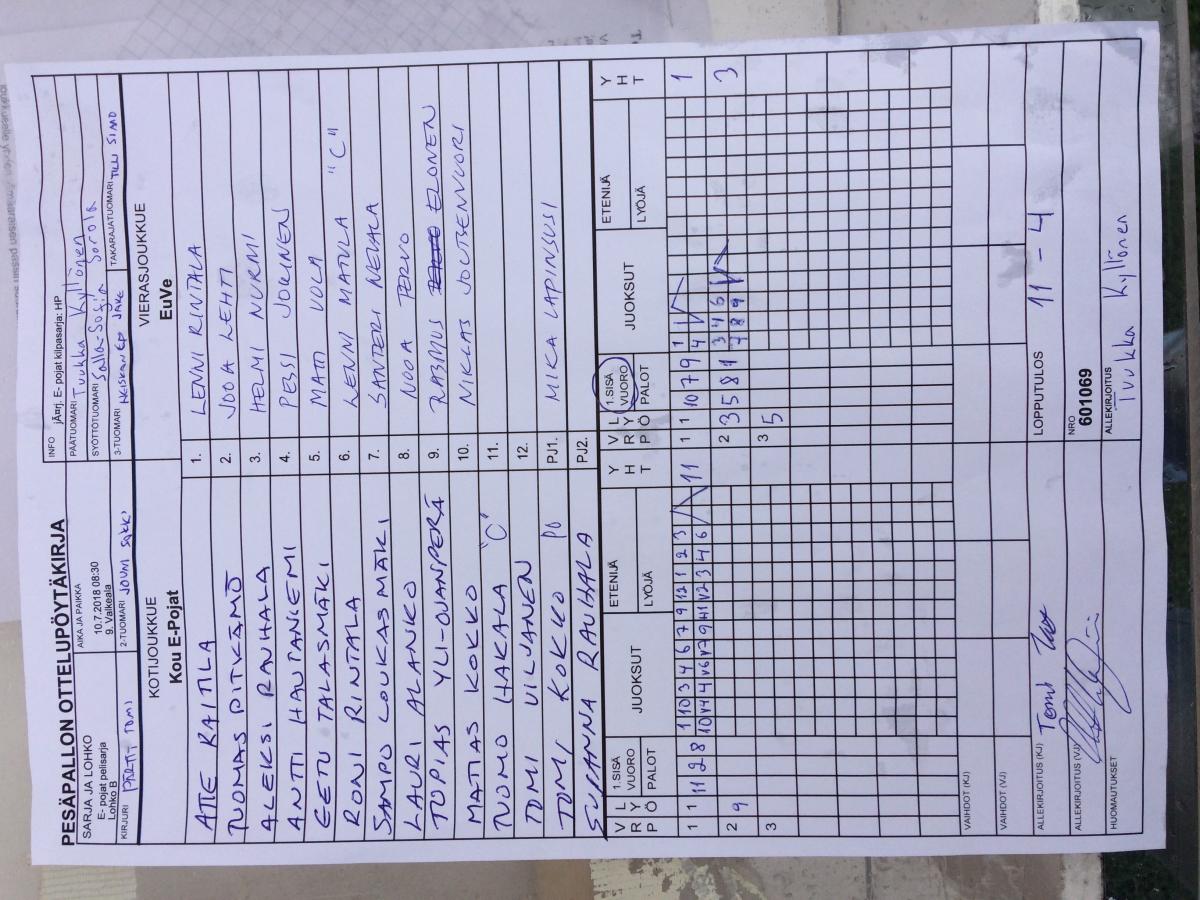 PESÄPALLON OTTELUPÖYTÄKIRJA
SARJA JA LOHKO
E- pojat pelisarja
Lohko B
AIKA JA PAIKKA
10.7.2018 08:30
9. Vaikeala
INFO jÃ¤rj. E- pojat kilpasarja: HP
PÄÄTUOMARI Tuukka Kyllönen
SYÖTTÖTUOMARI Salla-Sofia Sorola
KIRJURI TOMI
2-TUOMARI JOUNI
3-TUOMARI
TAKARAJATUOMARI SIMO
KOTIJOUKKUE
Kou E-Pojat
VIERASJOUKKUE
EuVe
ATTE RAITILA 1. LENNI RINTALA
TUOMAS PITKÄMÖ 2. JOOA LEHTI
ALEKSI RAUHALA 3. HELMI NURMI
ANTTI HAUTANIEMI 4. PESSI JOKINEN
EETU TALASMÄKI 5. MATTI
RONI RINTALA 6. LENNI MATULA "C"
SAMPU LOUKASMÄKI 7. SANTERI NEVALA
LAURI ALANKO 8. NOOA PERVO
TOPIAS YLI-OJANPERÄ 9. RASMUS ELONEN
MATIAS KOKKO 10. NIKLAS JOUTSENVUORI
TUOMO HAKALA "C" 11.
TOMI VILJANEN 12.
TOMI KOKKO PJ PJ1. MIKA
SUSANNA RAUHALA PJ2.
V R P L Y Ö 1.SISÄ VUORO PALOT JUOKSUT ETENIJÄ LYÖJÄ Y H T V R P L Y Ö 1.SISÄ VUORO PALOT JUOKSUT ETENIJÄ LYÖJÄ Y H T
1 1 11 2 8 1 10 3 4 6 7 9 12 1 2 3 11 1 1 10 7 9 1 1
2 9 2 3 5 8 1 3 4 6 3
7 8 9
3 3 5
VAIHDOT (KJ)
VAIHDOT (VJ)
ALLEKIRJOITUS (KJ) Tomi
LOPPUTULOS 11 - 4
ALLEKIRJOITUS (VJ)
NRO
601069
HUOMAUTUKSET
ALLEKIRJOITUS
Tuukka Kyllönen